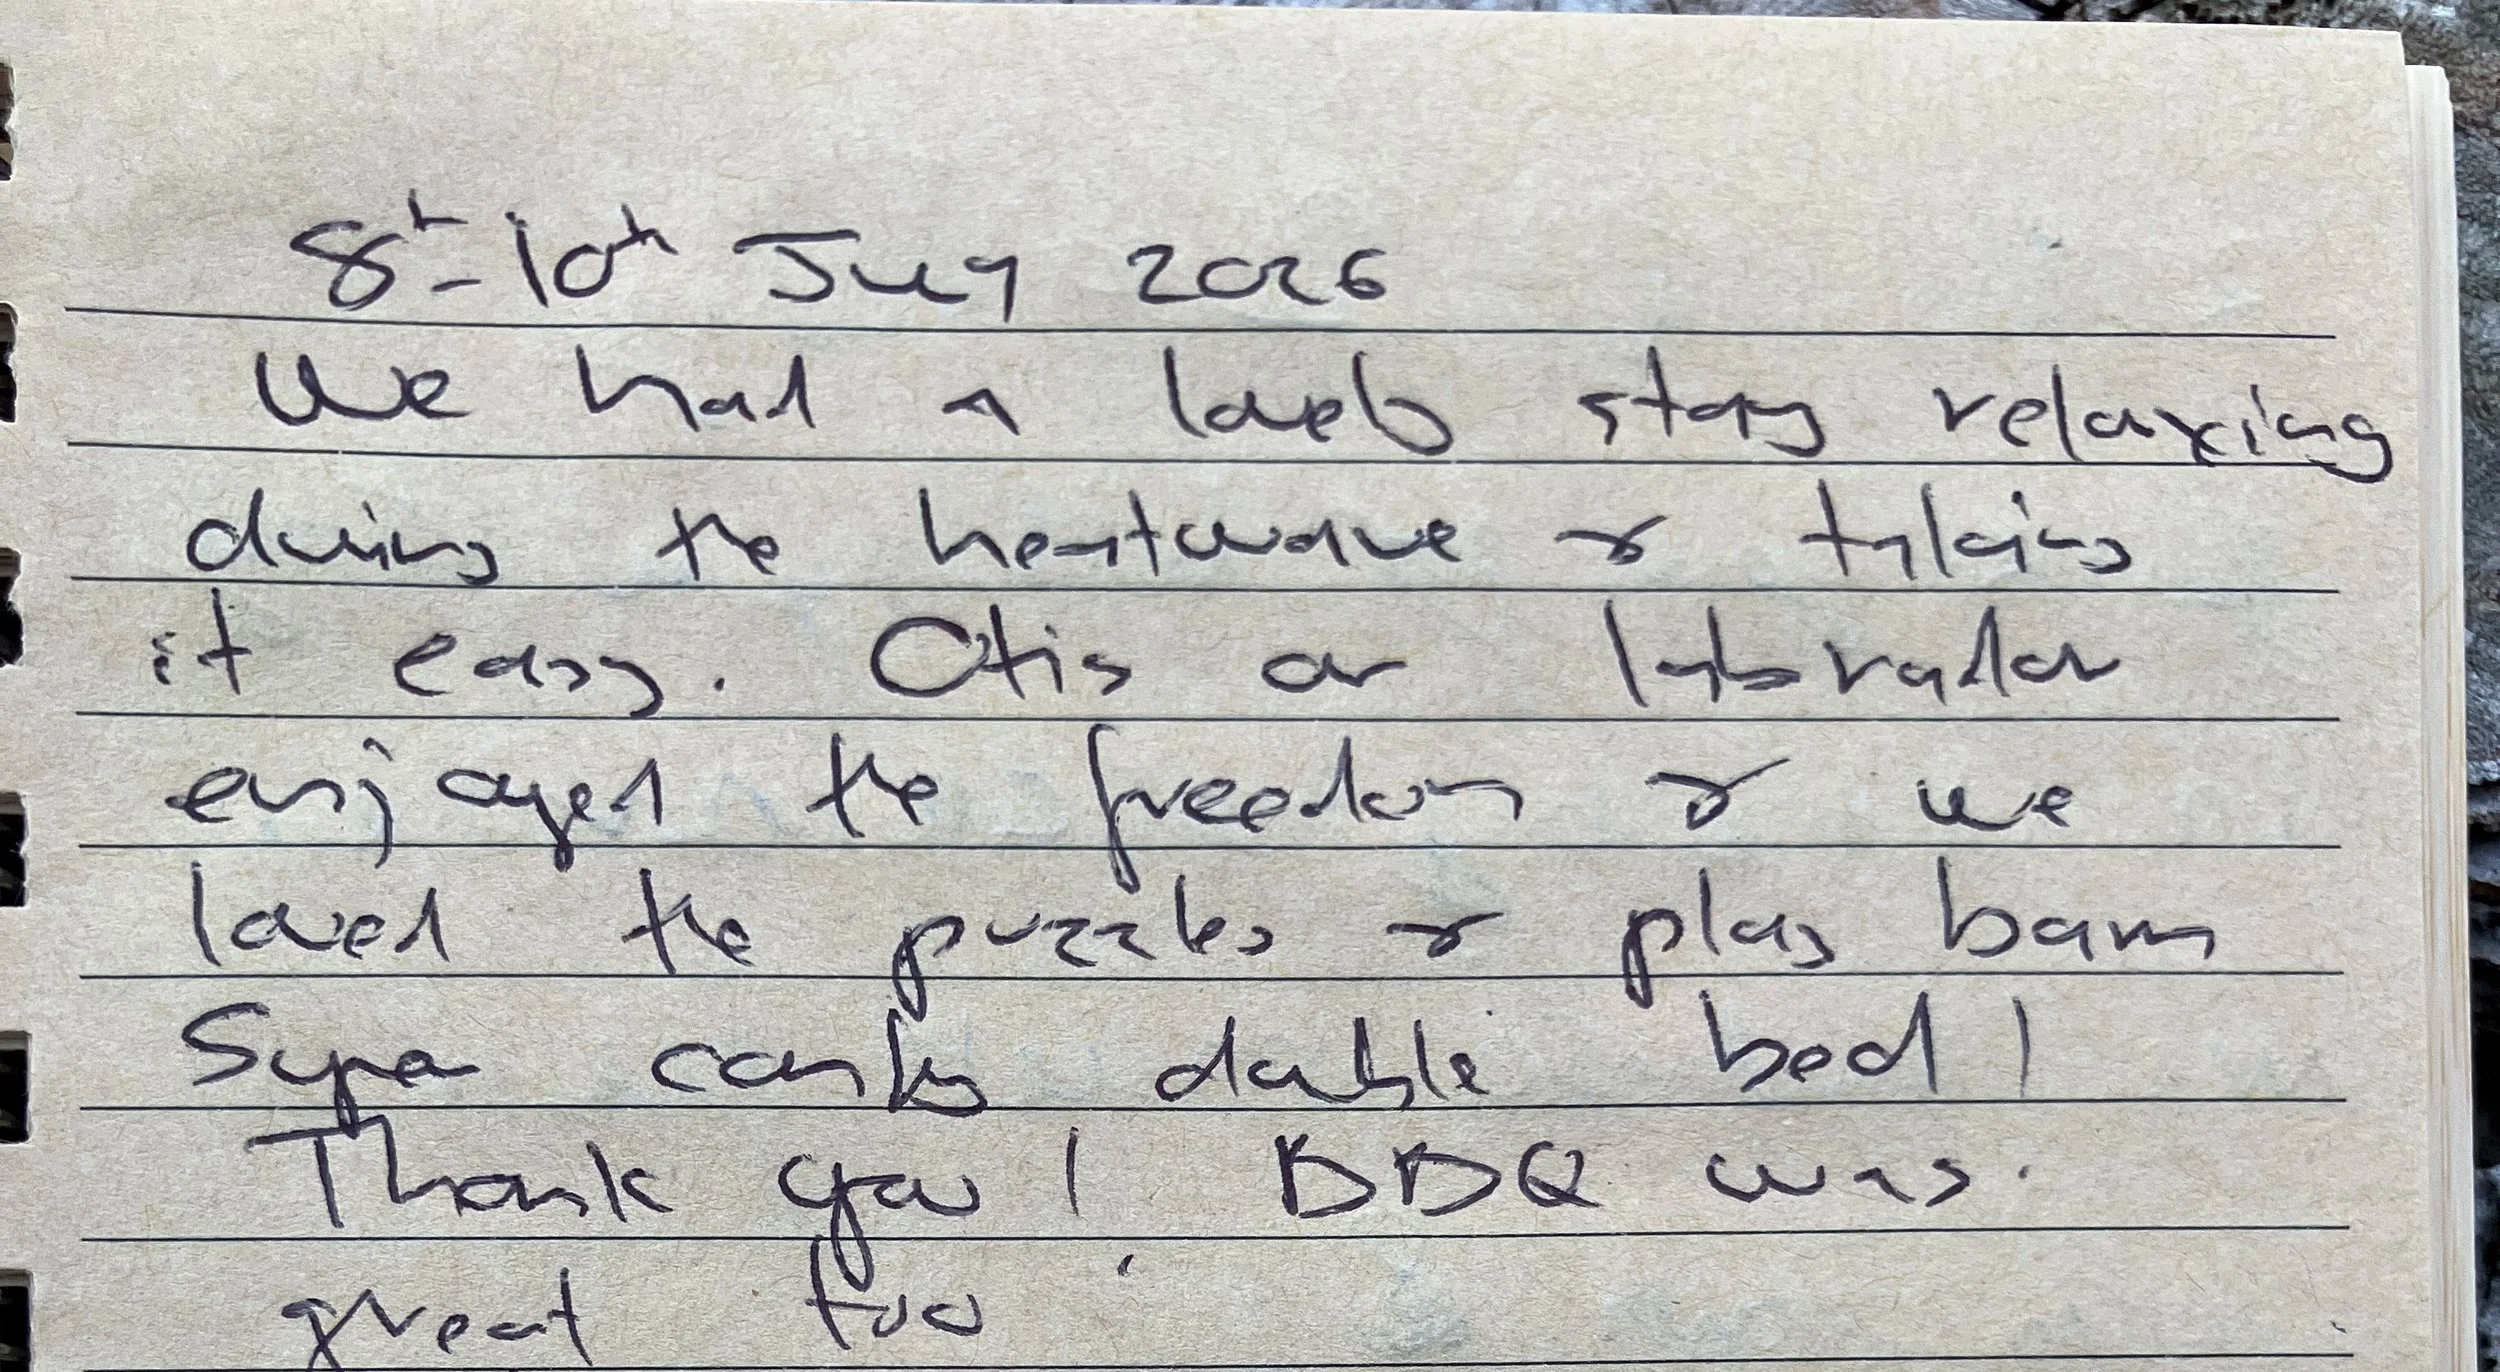 8th - 10th July 2026
We had a lovely stay relaxing
during the heatwave & taking
it easy. Otis our labrador
enjoyed the freedom & we
loved the puzzles & play barn
Super comfy double bed!
Thank you! BBQ was
great too